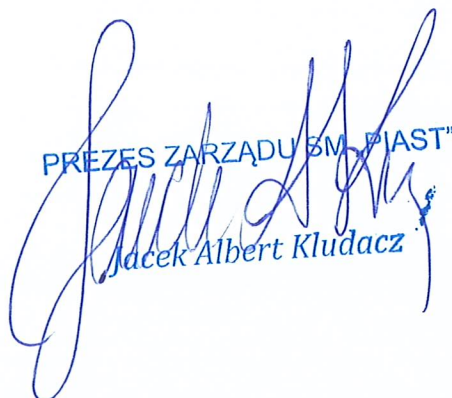 PREZES ZARZĄDU SM „PIAST”
Jacek Albert Kludacz